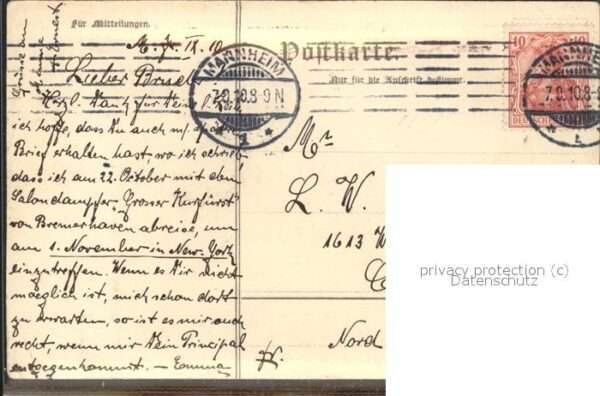 Für Mitteilungen.
Postkarte.
Nur für die Anschrift bestimmt.
Grüsse an
Mamma
u. Ernest
M. IX. 10
Lieber Bruder
Herzl. Dank für Deine l.
ich hoffe, dass Du auch m/
Brief erhalten hast, wo ich schrieb
dass ich am 22. Oktober mit dem
Salondampfer "Grosser Kurfürst"
von Bremerhaven abreise, um
am 1. November in New-York
einzutreffen. Wenn es Dir nicht
moeglich ist, mich schon dort
zu erwarten, so ist es mir auch
recht, wenn mir Dein Principal
entgegenkommt. — Emma
MANNHEIM
7.9.10.8-9N
* 1 *
10 10
DEUTSCHES
7.9.10.8-9
* 1
Mr
L. W.
1613 W
C
Nord
privacy protection (c)
Datenschutz